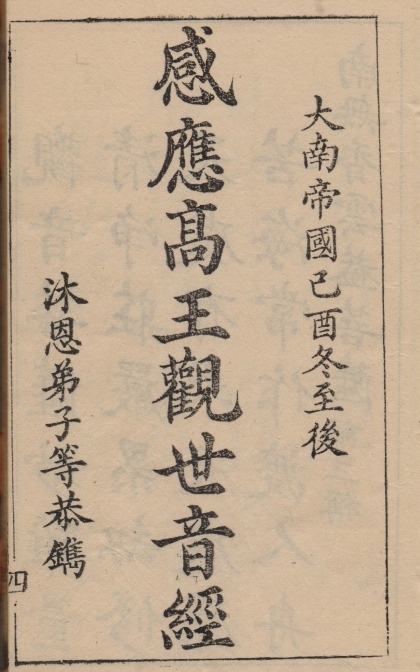 大南帝國己酉冬至後
感應髙王觀世音經
沐恩弟子等恭鐫
四